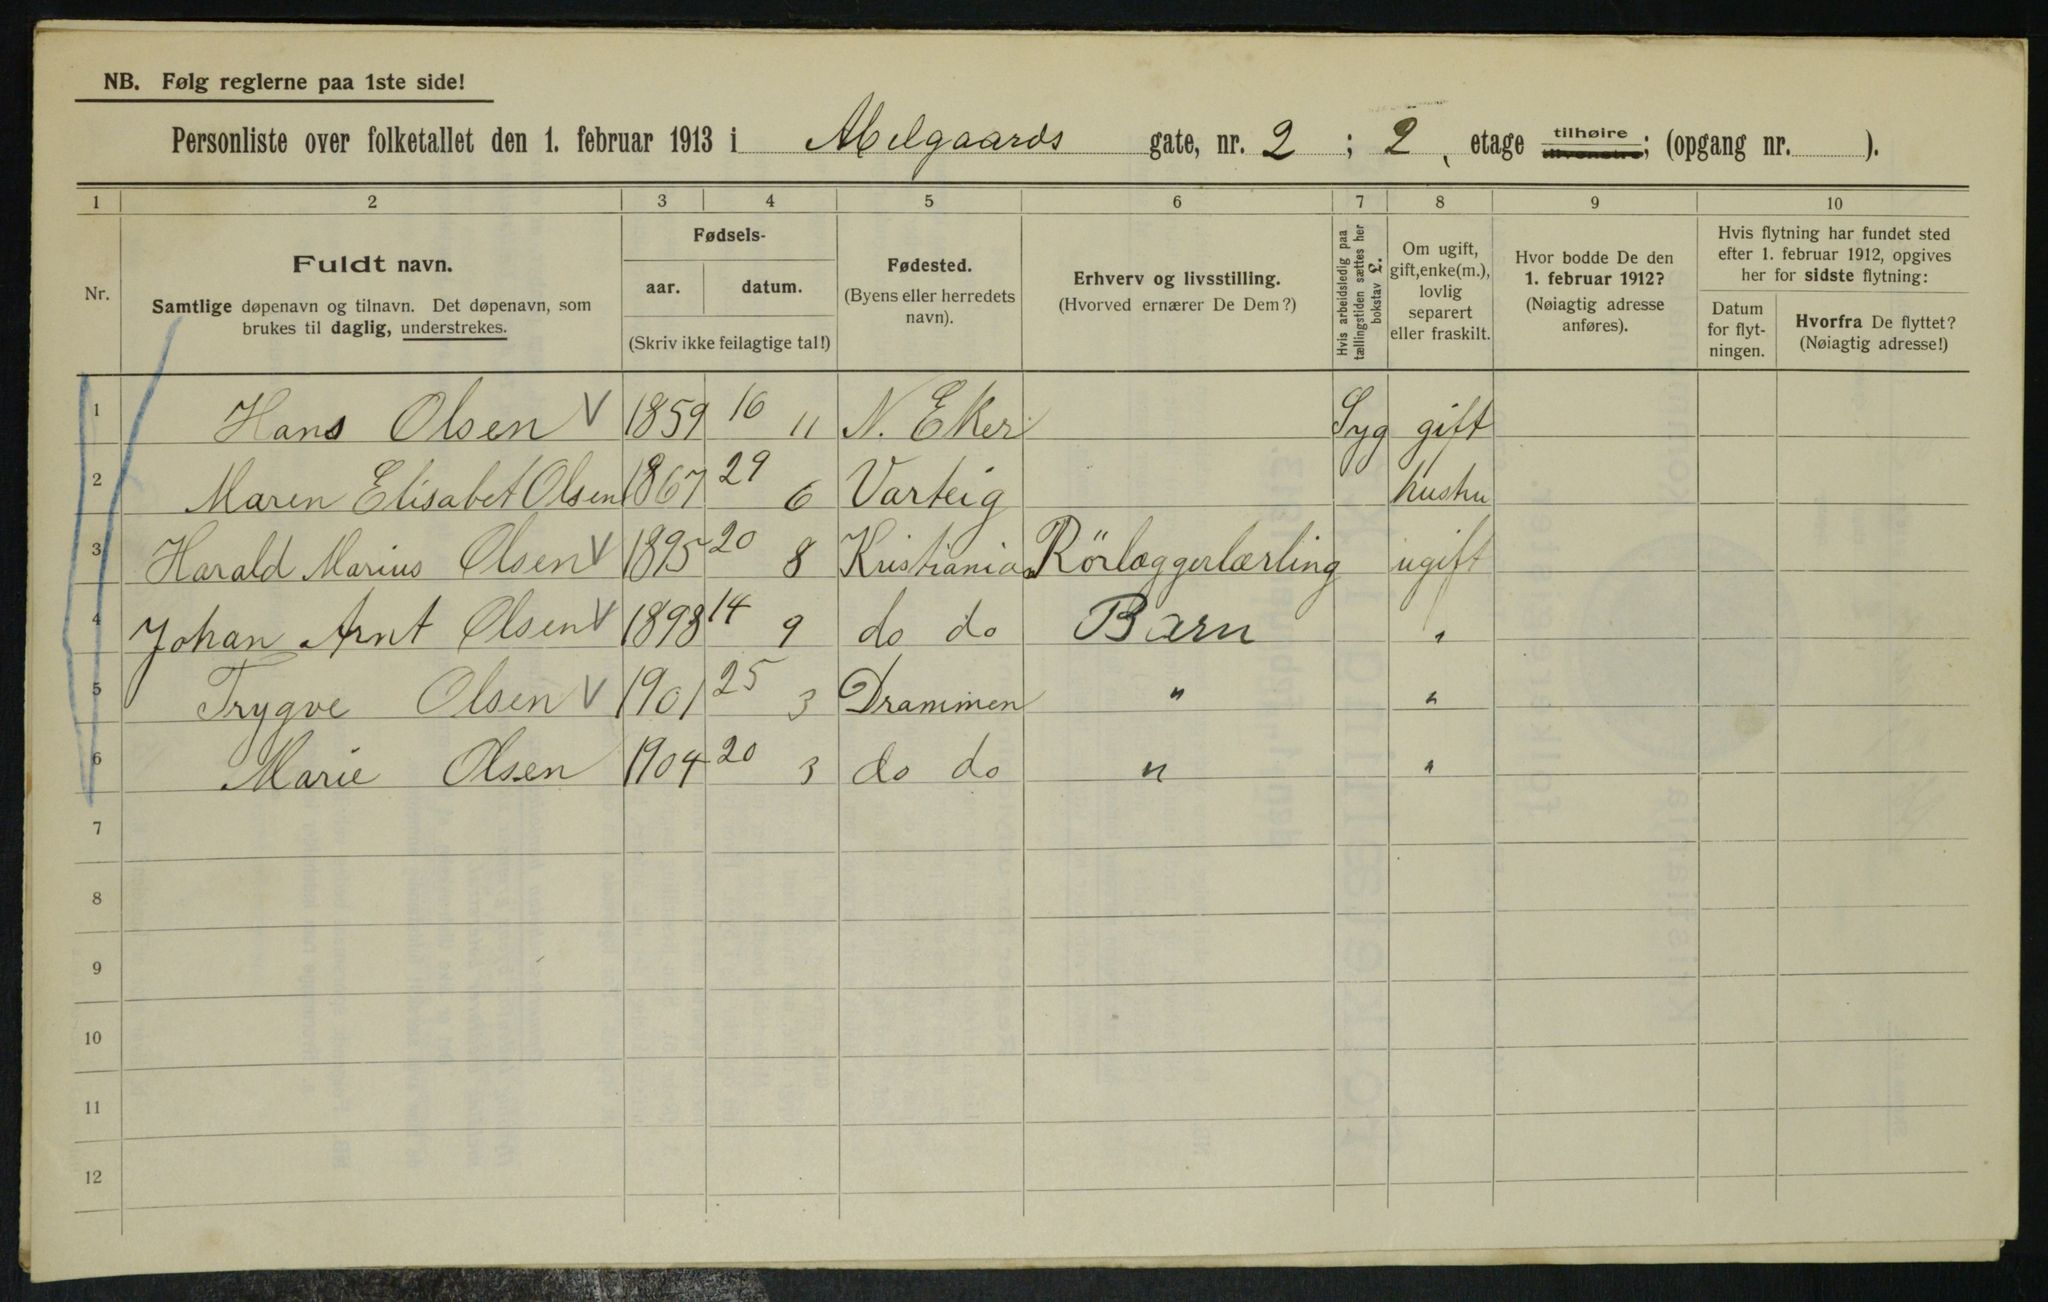 NB. Følg reglerne paa 1ste side!
Personliste over folketallet den 1. februar 1913 i Abelgaards gate, nr. 2 ; 2, etage tilhøire tilvenstre; (opgang nr. ).
1 2 3 4 5 6 7 8 9 10
Nr.
Fuldt navn.
Samtlige døpenavn og tilnavn. Det døpenavn, som
brukes til daglig, understrekes.
Fødsels-
aar. datum.
(Skriv ikke feilagtige tal!)
Fødested.
(Byens eller herredets
navn).
Erhverv og livsstilling.
(Hvorved ernærer De Dem?)
Hvis arbeidsledig paa
tællingstiden sættes her
bokstav L.
Om ugift,
gift, enke(m.),
lovlig
separert
eller fraskilt.
Hvor bodde De den
1. februar 1912?
(Nøiagtig adresse
anføres).
Hvis flytning har fundet sted
efter 1. februar 1912, opgives
her for sidste flytning:
Datum
for flyt-
ningen.
Hvorfra De flyttet?
(Nøiagtig adresse!)
1 Hans Olsen V 1859 16 11 N. Eker Syg gift
2 Maren Elisabet Olsen 1867 29 6 Varteig hustru
3 Harald Marius Olsen V 1895 20 8 Kristiania Rörlæggerlærling ugift
4 Johan Arnt Olsen V 1898 14 9 do do Barn "
5 Trygve Olsen V 1901 25 3 Drammen " "
6 Marie Olsen 1904 20 3 do do " "
7
8
9
10
11
12